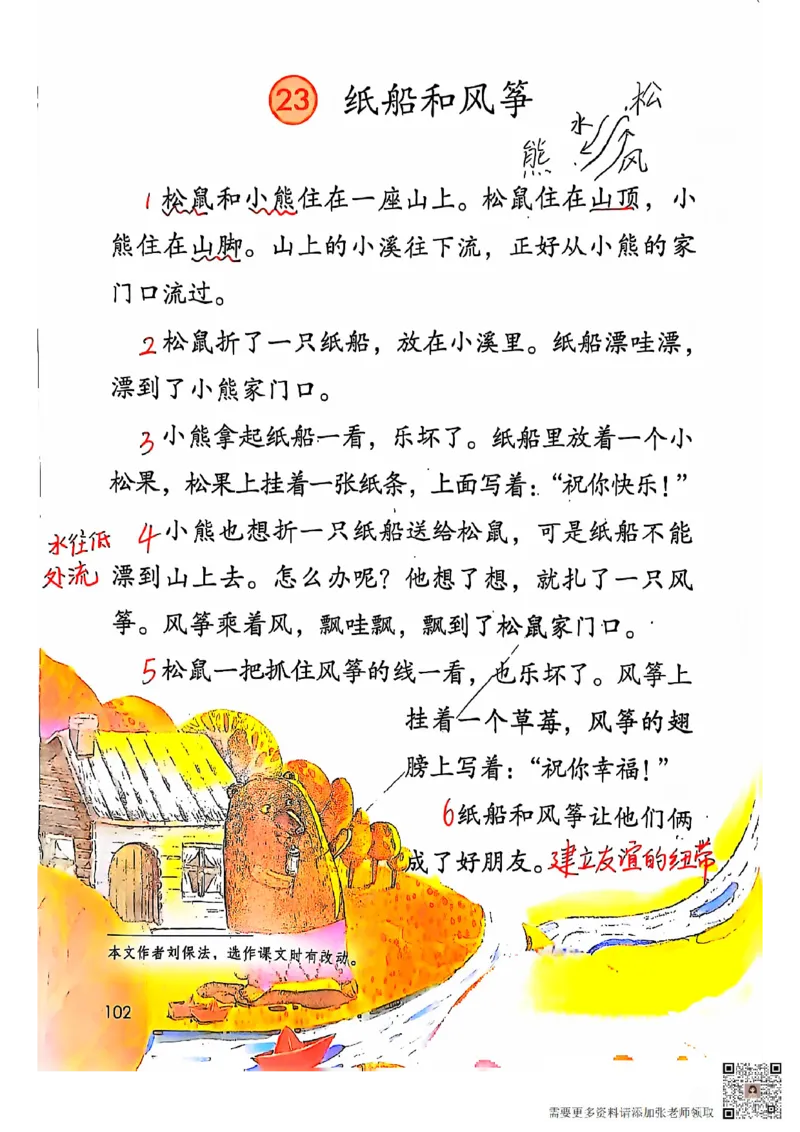 23 纸船和风筝
松
水
熊
风
1 松鼠和小熊住在一座山上。松鼠住在山顶，小
熊住在山脚。山上的小溪往下流，正好从小熊的家
门口流过。
2 松鼠折了一只纸船，放在小溪里。纸船漂哇漂，
漂到了小熊家门口。
3 小熊拿起纸船一看，乐坏了。纸船里放着一个小
松果，松果上挂着一张纸条，上面写着：“祝你快乐！”
水往低
处流
4 小熊也想折一只纸船送给松鼠，可是纸船不能
漂到山上去。怎么办呢？他想了想，就扎了一只风
筝。风筝乘着风，飘哇飘，飘到了松鼠家门口。
5 松鼠一把抓住风筝的线一看，也乐坏了。风筝上
挂着一个草莓，风筝的翅
膀上写着：“祝你幸福！”
6 纸船和风筝让他们俩
成了好朋友。建立友谊的纽带
本文作者刘保法，选作课文时有改动。
102
需要更多资料请添加张老师领取